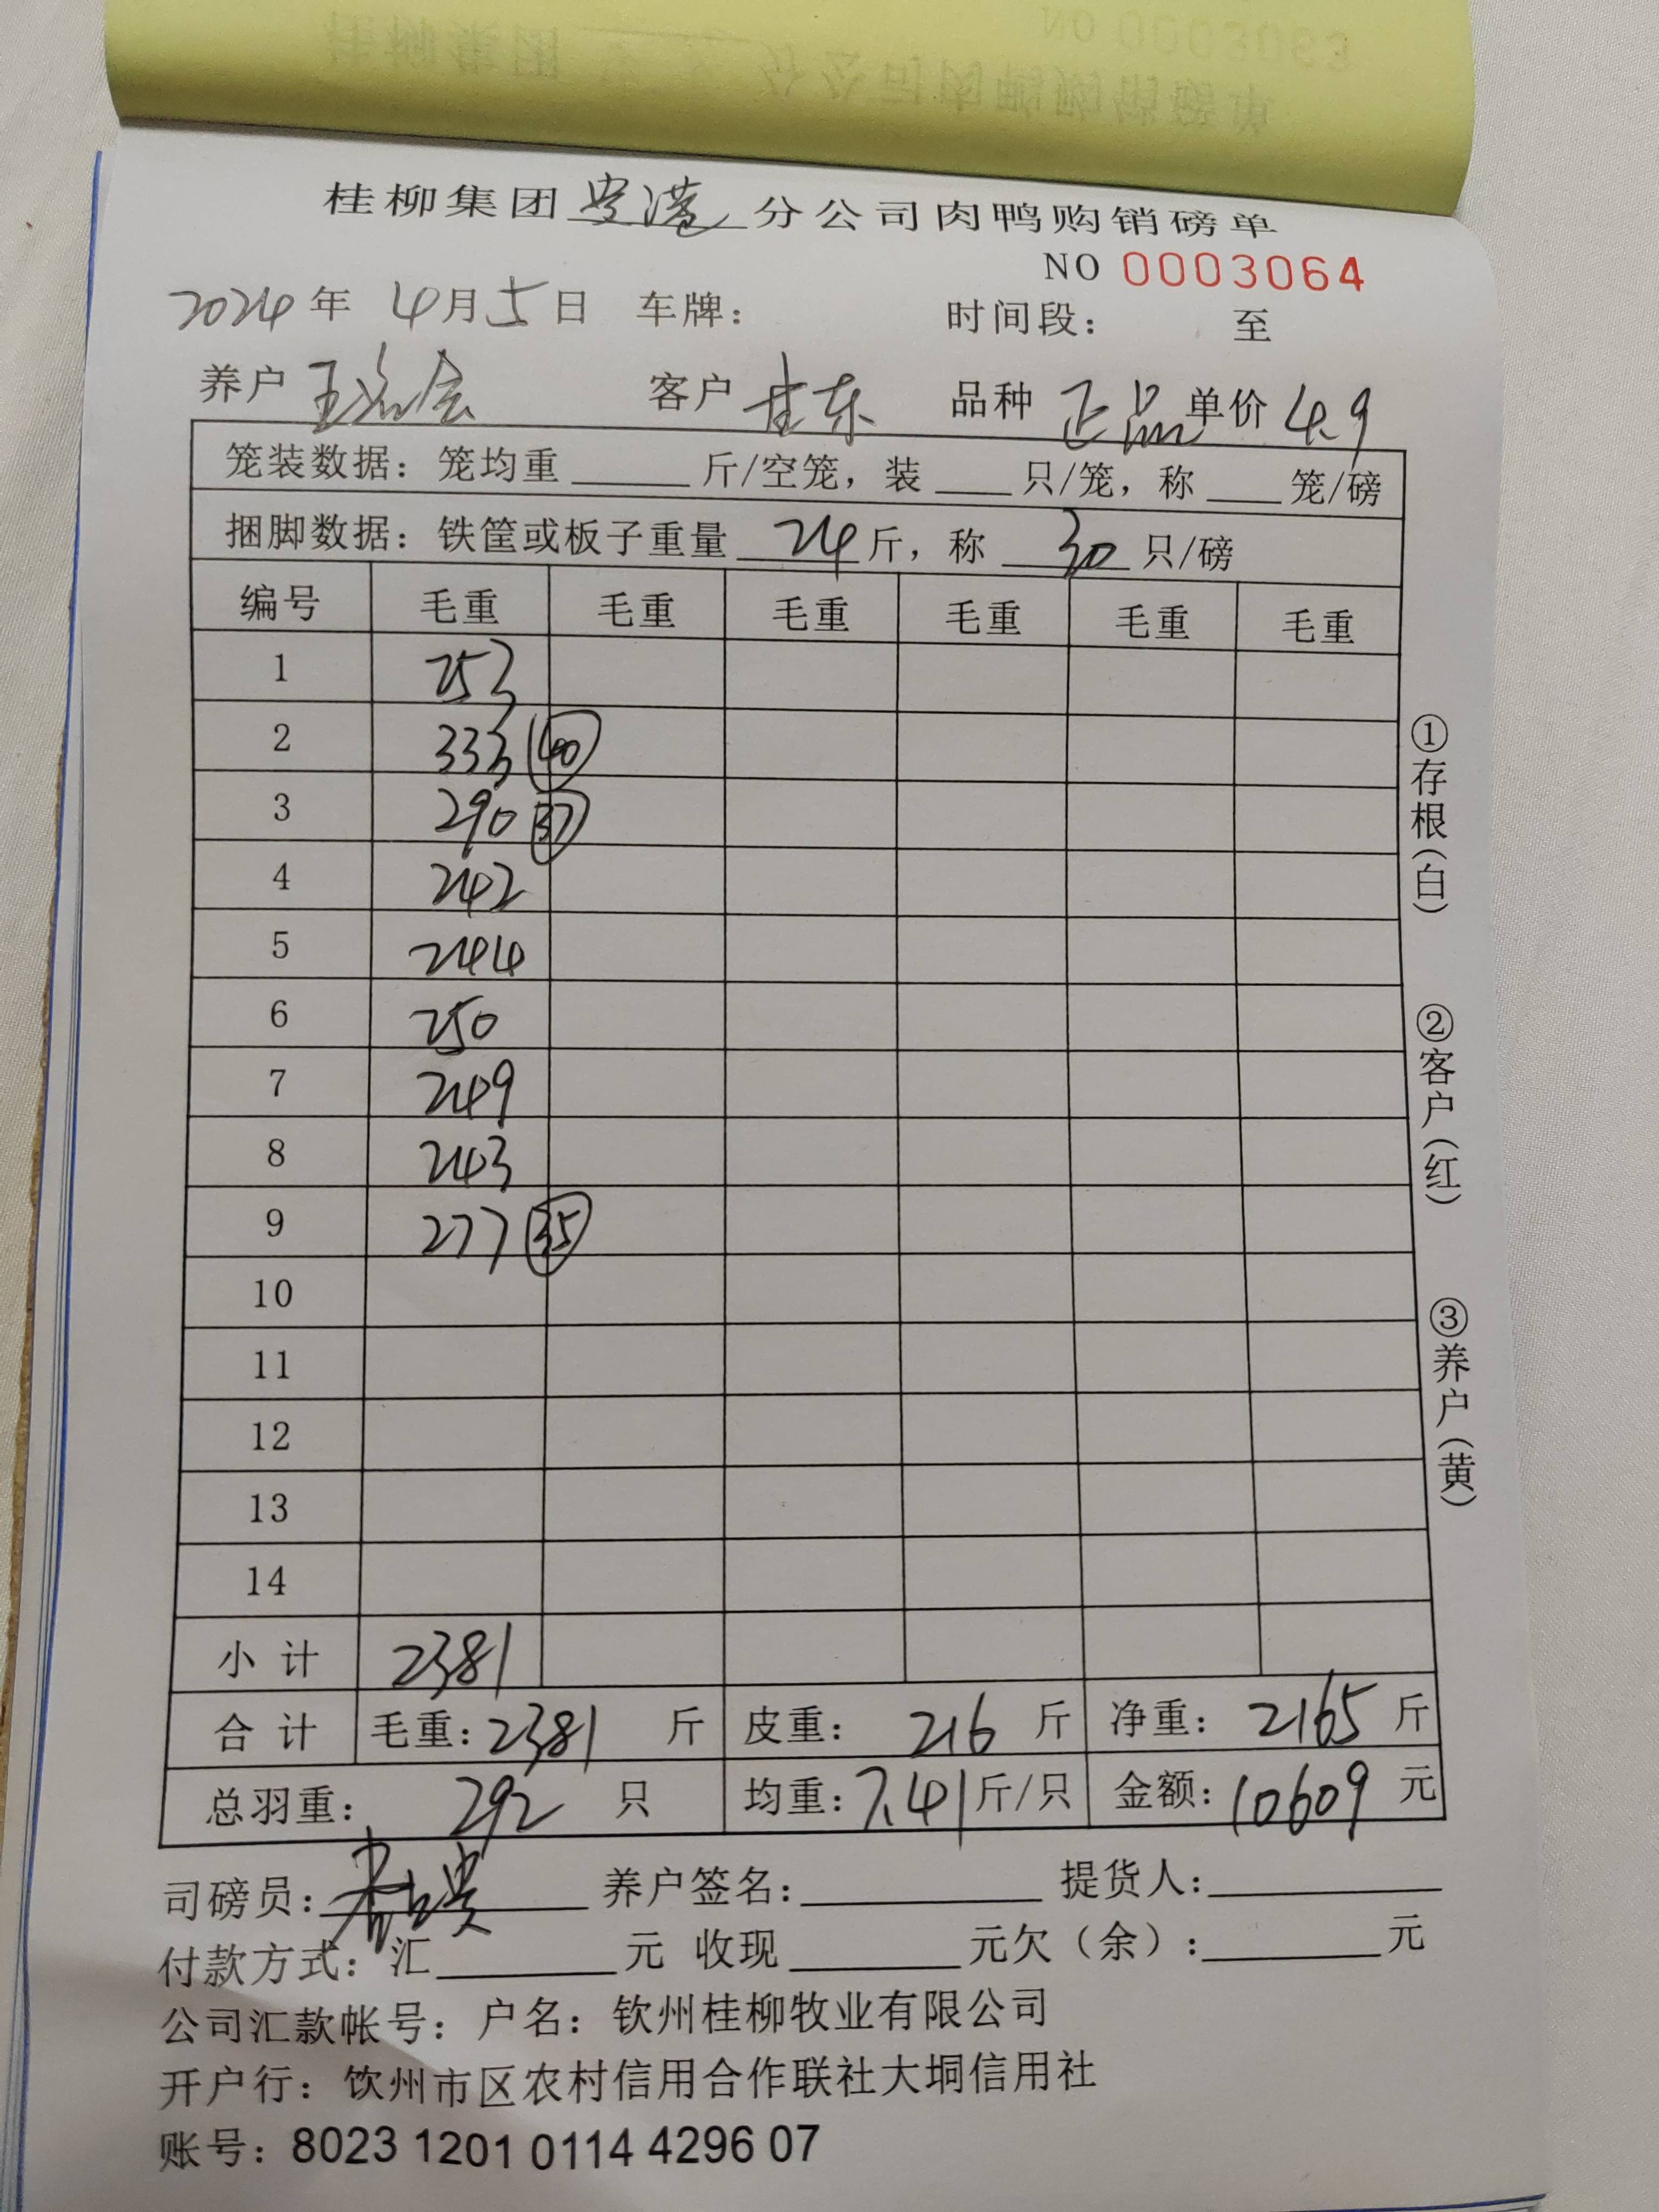 NO 0003063
桂柳集团 分公司肉鸭购销磅单
桂柳集团安港分公司肉鸭购销磅单
NO 0003064
2024年 4月5日 车牌： 时间段： 至
养户 王 会 客户 桂东 品种 正品 单价 4.9
笼装数据：笼均重______斤/空笼，装____只/笼，称____笼/磅
捆脚数据：铁筐或板子重量 24 斤，称 30 只/磅
编号 毛重 毛重 毛重 毛重 毛重 毛重
1 253
2 333 40
3 290 37
4 242
5 244
6 250
7 249
8 243
9 277 35
10
11
12
13
14
小计 2381
合计 毛重：2381 斤 皮重：216 斤 净重：2165 斤
总羽重：292 只 均重：7.41斤/只 金额：10609 元
司磅员： 养户签名：______ 提货人：______
付款方式：汇______元 收现______元欠（余）：______元
公司汇款帐号：户名：钦州桂柳牧业有限公司
开户行：钦州市区农村信用合作联社大垌信用社
账号：8023 1201 0114 4296 07
①存根（白）
②客户（红）
③养户（黄）